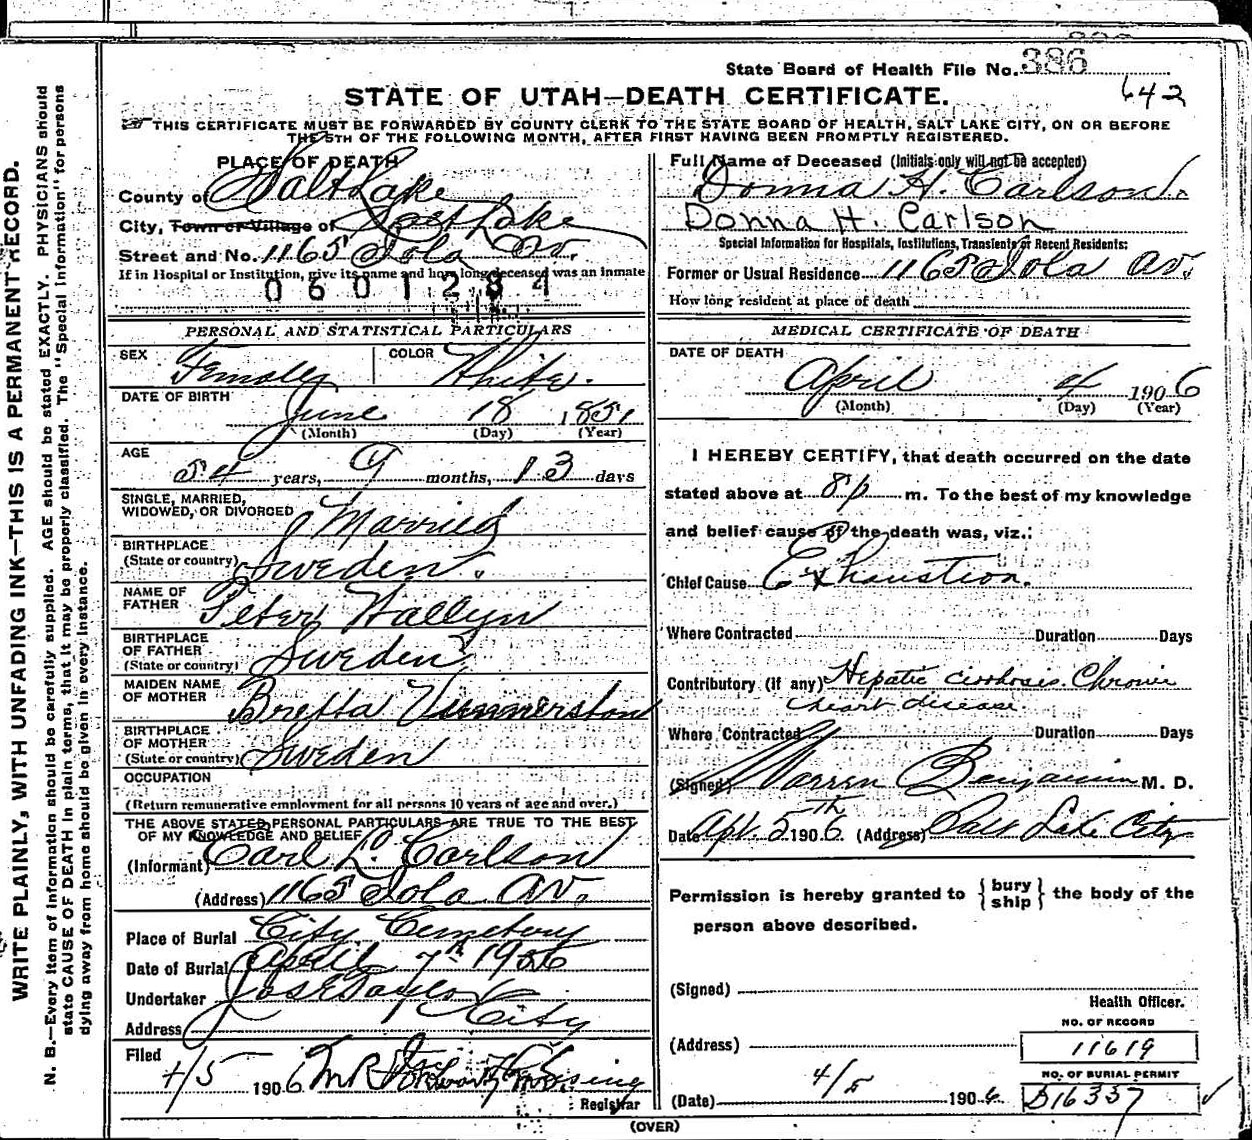 State Board of Health File No. 386
642
STATE OF UTAH—DEATH CERTIFICATE.
THIS CERTIFICATE MUST BE FORWARDED BY COUNTY CLERK TO THE STATE BOARD OF HEALTH, SALT LAKE CITY, ON OR BEFORE
THE 5TH OF THE FOLLOWING MONTH, AFTER FIRST HAVING BEEN PROMPTLY REGISTERED.
WRITE PLAINLY, WITH UNFADING INK—THIS IS A PERMANENT RECORD.
N. B.—Every item of information should be carefully supplied. AGE should be stated EXACTLY. PHYSICIANS should
state CAUSE OF DEATH in plain terms, that it may be properly classified. The "Special Information" for persons
dying away from home should be given in every instance.
PLACE OF DEATH
County of Salt Lake
City, Town or Village of Salt Lake
Street and No. 1165 Iola Av.
If in Hospital or Institution, give its name and how long deceased was an inmate
0601284
PERSONAL AND STATISTICAL PARTICULARS
SEX Female COLOR White.
DATE OF BIRTH
June 18 1851
(Month) (Day) (Year)
AGE
54 years, 9 months, 13 days
SINGLE, MARRIED,
WIDOWED, OR DIVORCED Married
BIRTHPLACE
(State or country) Sweden.
NAME OF
FATHER Peter Hallyn
BIRTHPLACE
OF FATHER
(State or country) Sweden
MAIDEN NAME
OF MOTHER Bretta
BIRTHPLACE
OF MOTHER
(State or country) Sweden
OCCUPATION
(Return remunerative employment for all persons 10 years of age and over.)
THE ABOVE STATED PERSONAL PARTICULARS ARE TRUE TO THE BEST
OF MY KNOWLEDGE AND BELIEF
(Informant) Carl L. Carlson
(Address) 1165 Iola Av.
Place of Burial City Cemetery
Date of Burial April 7th 1906
Undertaker Jos E Taylor
Address City
Filed
4/5 1906
Registrar
Full Name of Deceased (Initials only will not be accepted)
Donna H. Carlson.
Donna H. Carlson
Special Information for Hospitals, Institutions, Transients or Recent Residents:
Former or Usual Residence 1165 Iola Av.
How long resident at place of death
MEDICAL CERTIFICATE OF DEATH
DATE OF DEATH
April 4 1906
(Month) (Day) (Year)
I HEREBY CERTIFY, that death occurred on the date
stated above at 8 p m. To the best of my knowledge
and belief cause of the death was, viz.:
Chief Cause Exhaustion.
Where Contracted Duration Days
Contributory (if any) Hepatic cirrhosis. Chronic
heart disease.
Where Contracted Duration Days
(Signed) Warren Benjamin M. D.
Date Apr. 5th 1906. (Address) Salt Lake City
Permission is hereby granted to { bury
ship } the body of the
person above described.
(Signed)
Health Officer.
NO. OF RECORD
(Address) 11619
NO. OF BURIAL PERMIT
(Date) 4/5 1906 B16337
(OVER)